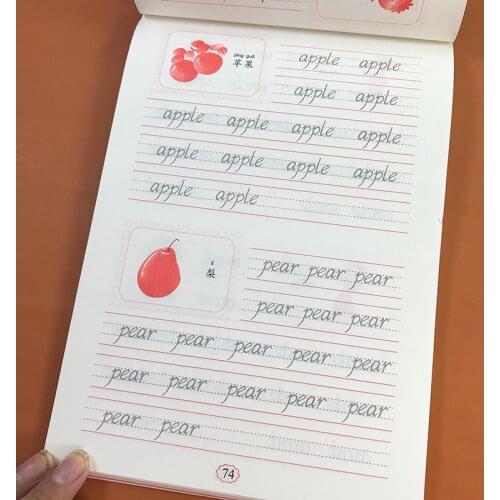 píng guǒ
苹果
apple apple
apple apple
apple apple apple apple
apple apple apple apple
apple apple
lí
梨
pear pear pear
pear pear pear
pear pear pear pear pear
pear pear pear pear pear
pear pear
74